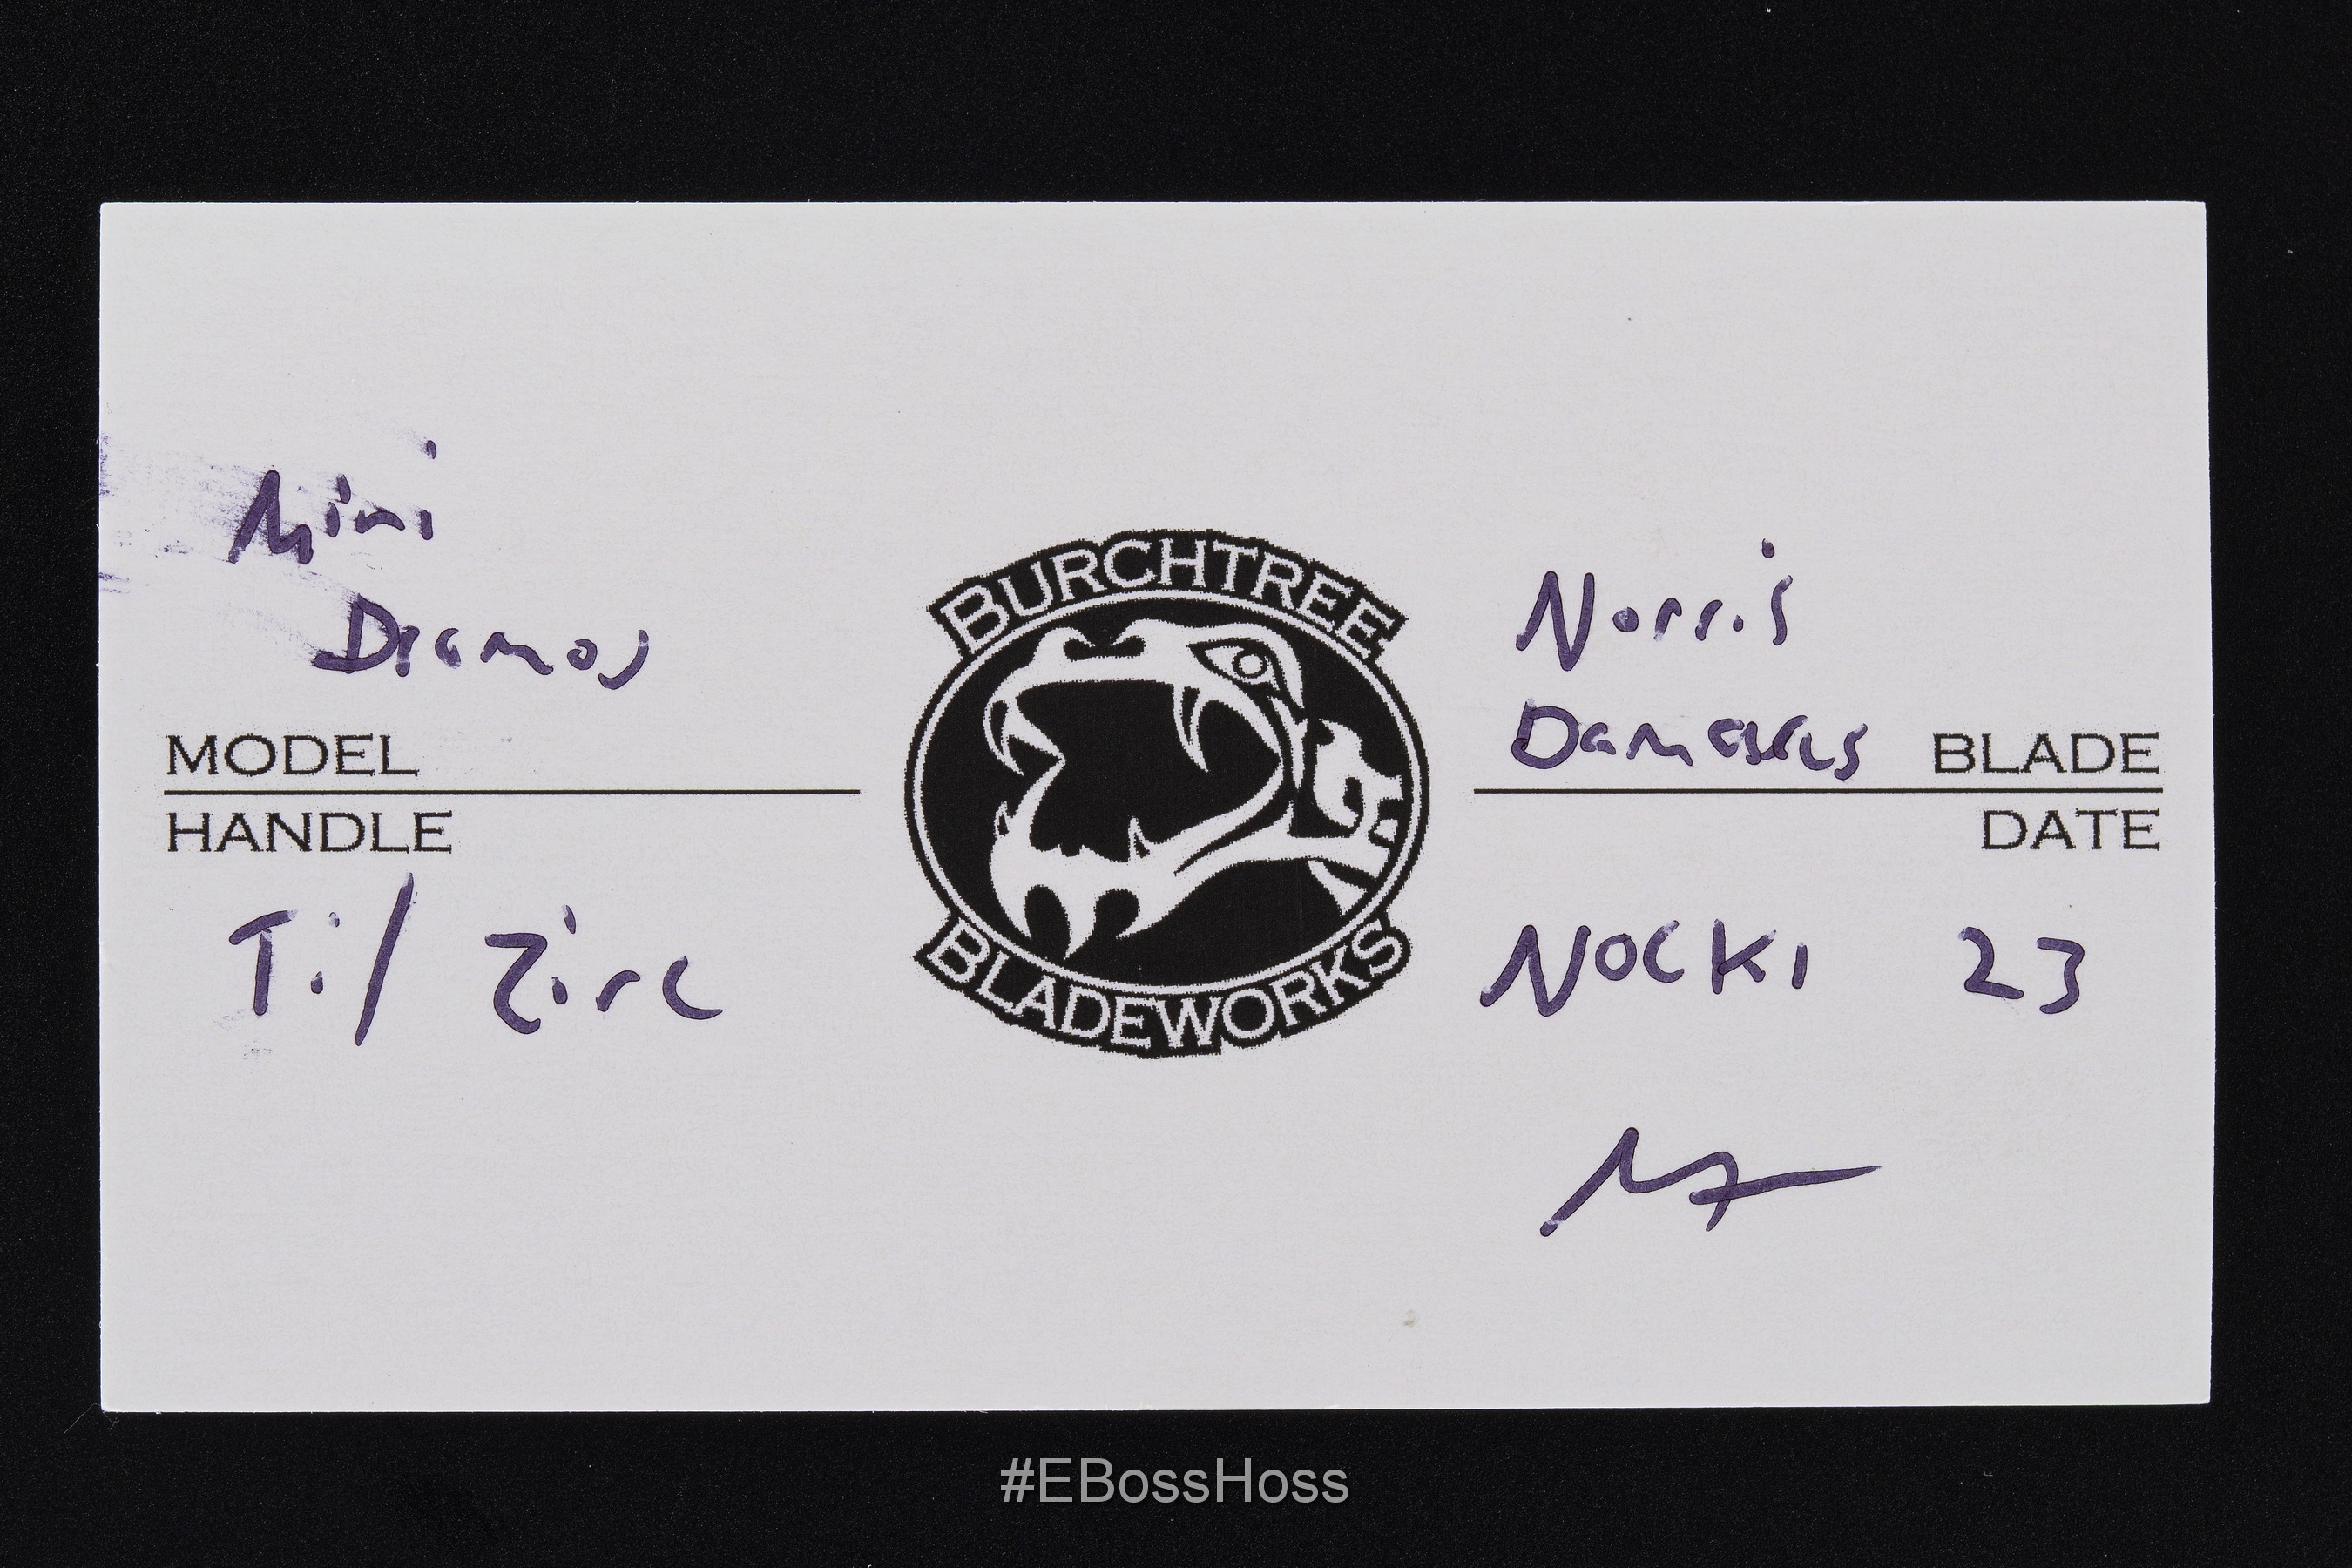 Mini
Diamos
MODEL
HANDLE
Ti/ Zirc
BURCHTREE
BLADEWORKS
Norris
Damascus BLADE
DATE
NOCKI 23
#EBossHoss